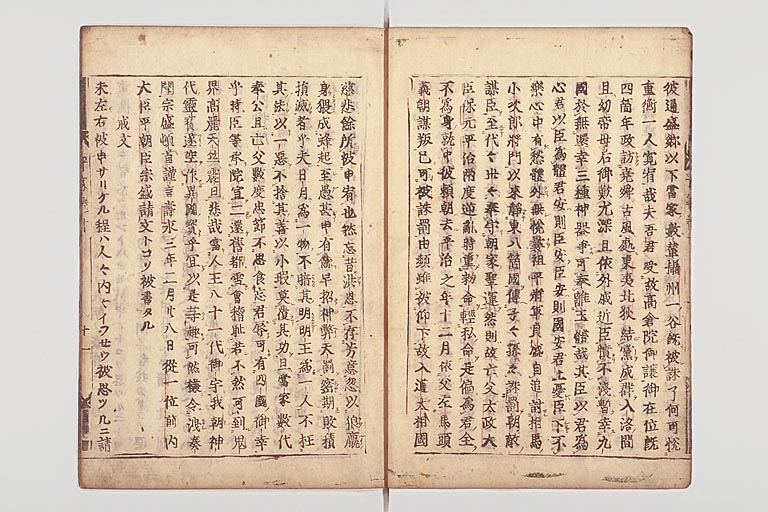 彼通盛卿以下當家數輩攝州一谷既被誅了何可悦
重衡一人寛宥哉夫吾君受故高倉院御讓御在位既
四箇年政訪堯舜古風處東夷北狄結黨成群入洛間
且幼帝母后御歎尤深且依外戚近臣憤不淺暫幸九
國於無還幸三種神器爭可奉離玉體哉其臣以君為
心君以臣為體君安則臣安臣安則國安君上憂臣下不
樂心中有愁體外無悦曩祖平將軍貞盛自追討相馬
小次郎將門以來靜東八箇國傳子々孫々誅罰朝敵
謀臣至代々世々奉守朝家聖運然則故亡父太政大
臣保元平治兩度逆亂時重勅命輕私命是偏為君全
不為身就中彼頼朝去平治之年十二月依父左馬頭
義朝謀叛已可被誅罰由頻雖被仰下故入道太相國
慈悲餘所被申宥也然忘昔洪恩不存芳意忽以狼羸
身猥成蜂起至愚甚申有餘早招神弊天罰密期敗積
損滅者乎夫日月為一物不暗其明明王為一人不枉
其法以一惡不捨其善以小瑕莫覆其功且當家數代
奉公且亡父數度忠節不思食忘君辱可有四國御幸
乎時臣等承院宣二還舊都雪會稽耻若不然可到鬼
界高麗天竺震旦悲哉當人王八十一代御宇我朝神
代靈寳遂空作異國寳乎宜以是等趣可然樣令洩奏
聞宗盛頓首謹言壽永三年二月廿八日從一位前内
大臣平朝臣宗盛請文トコソ被書タル
戒文
未左右被申サリケル程ハ人々内々イフセウ被思ツルニ請